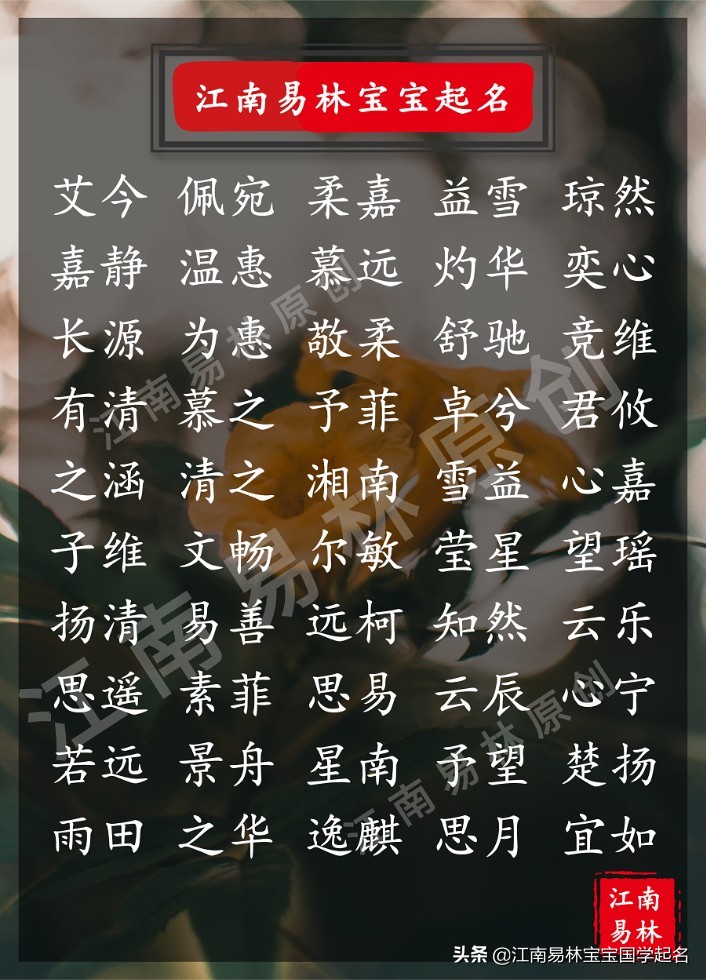 江南易林宝宝起名
艾今 佩宛 柔嘉 益雪 琼然
嘉静 温惠 慕远 灼华 奕心
长源 为惠 敬柔 舒驰 竞维
有清 慕之 予菲 卓兮 君攸
之涵 清之 湘南 雪益 心嘉
子维 文畅 尔敏 莹星 望瑶
扬清 易善 远柯 知然 云乐
思遥 素菲 思易 云辰 心宁
若远 景舟 星南 予望 楚扬
雨田 之华 逸麒 思月 宜如
江南易林原创
江南易林原创
江南易林原创
江南
易林
头条 @江南易林宝宝国学起名